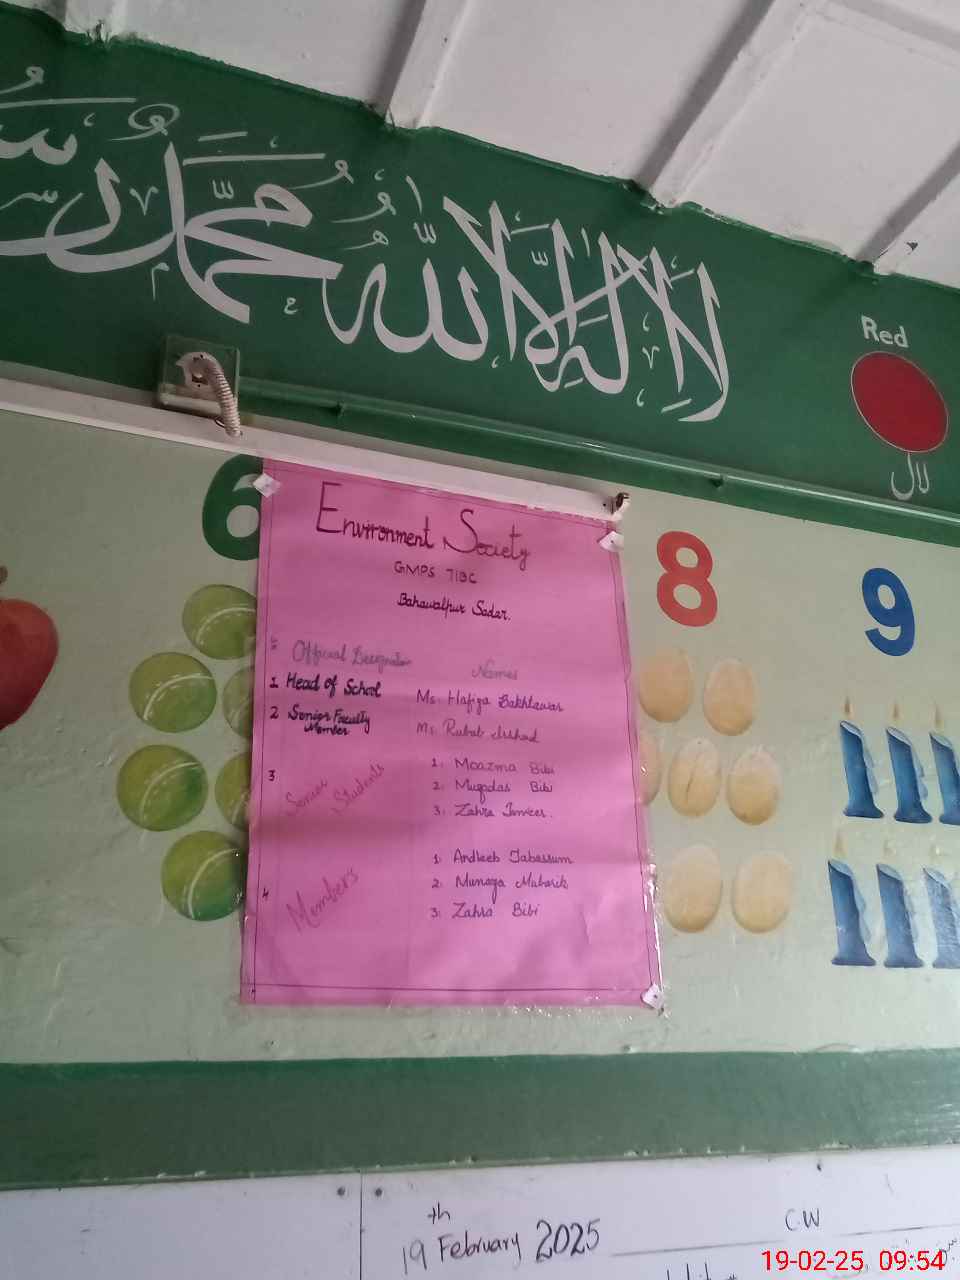 لَا إِلَٰهَ إِلَّا اللّٰهُ مُحَمَّدٌ رَسُ
Red
لال
6
8
9
Environment Society
GMPS 71BC
Bahawalpur Sadar.
Official Designation Names
1 Head of School Ms. Hafiza Bakhtawar
2 Senior Faculty Member Ms Rubab Irshad
3 Senior Students
1. Moazma Bibi
2. Muqadas Bibi
3. Zahra
4 Members
1. Andleeb Tabassum
2. Munaza Mubarik
3. Zahra Bibi
19th February 2025 C.W
19-02-25 09:54